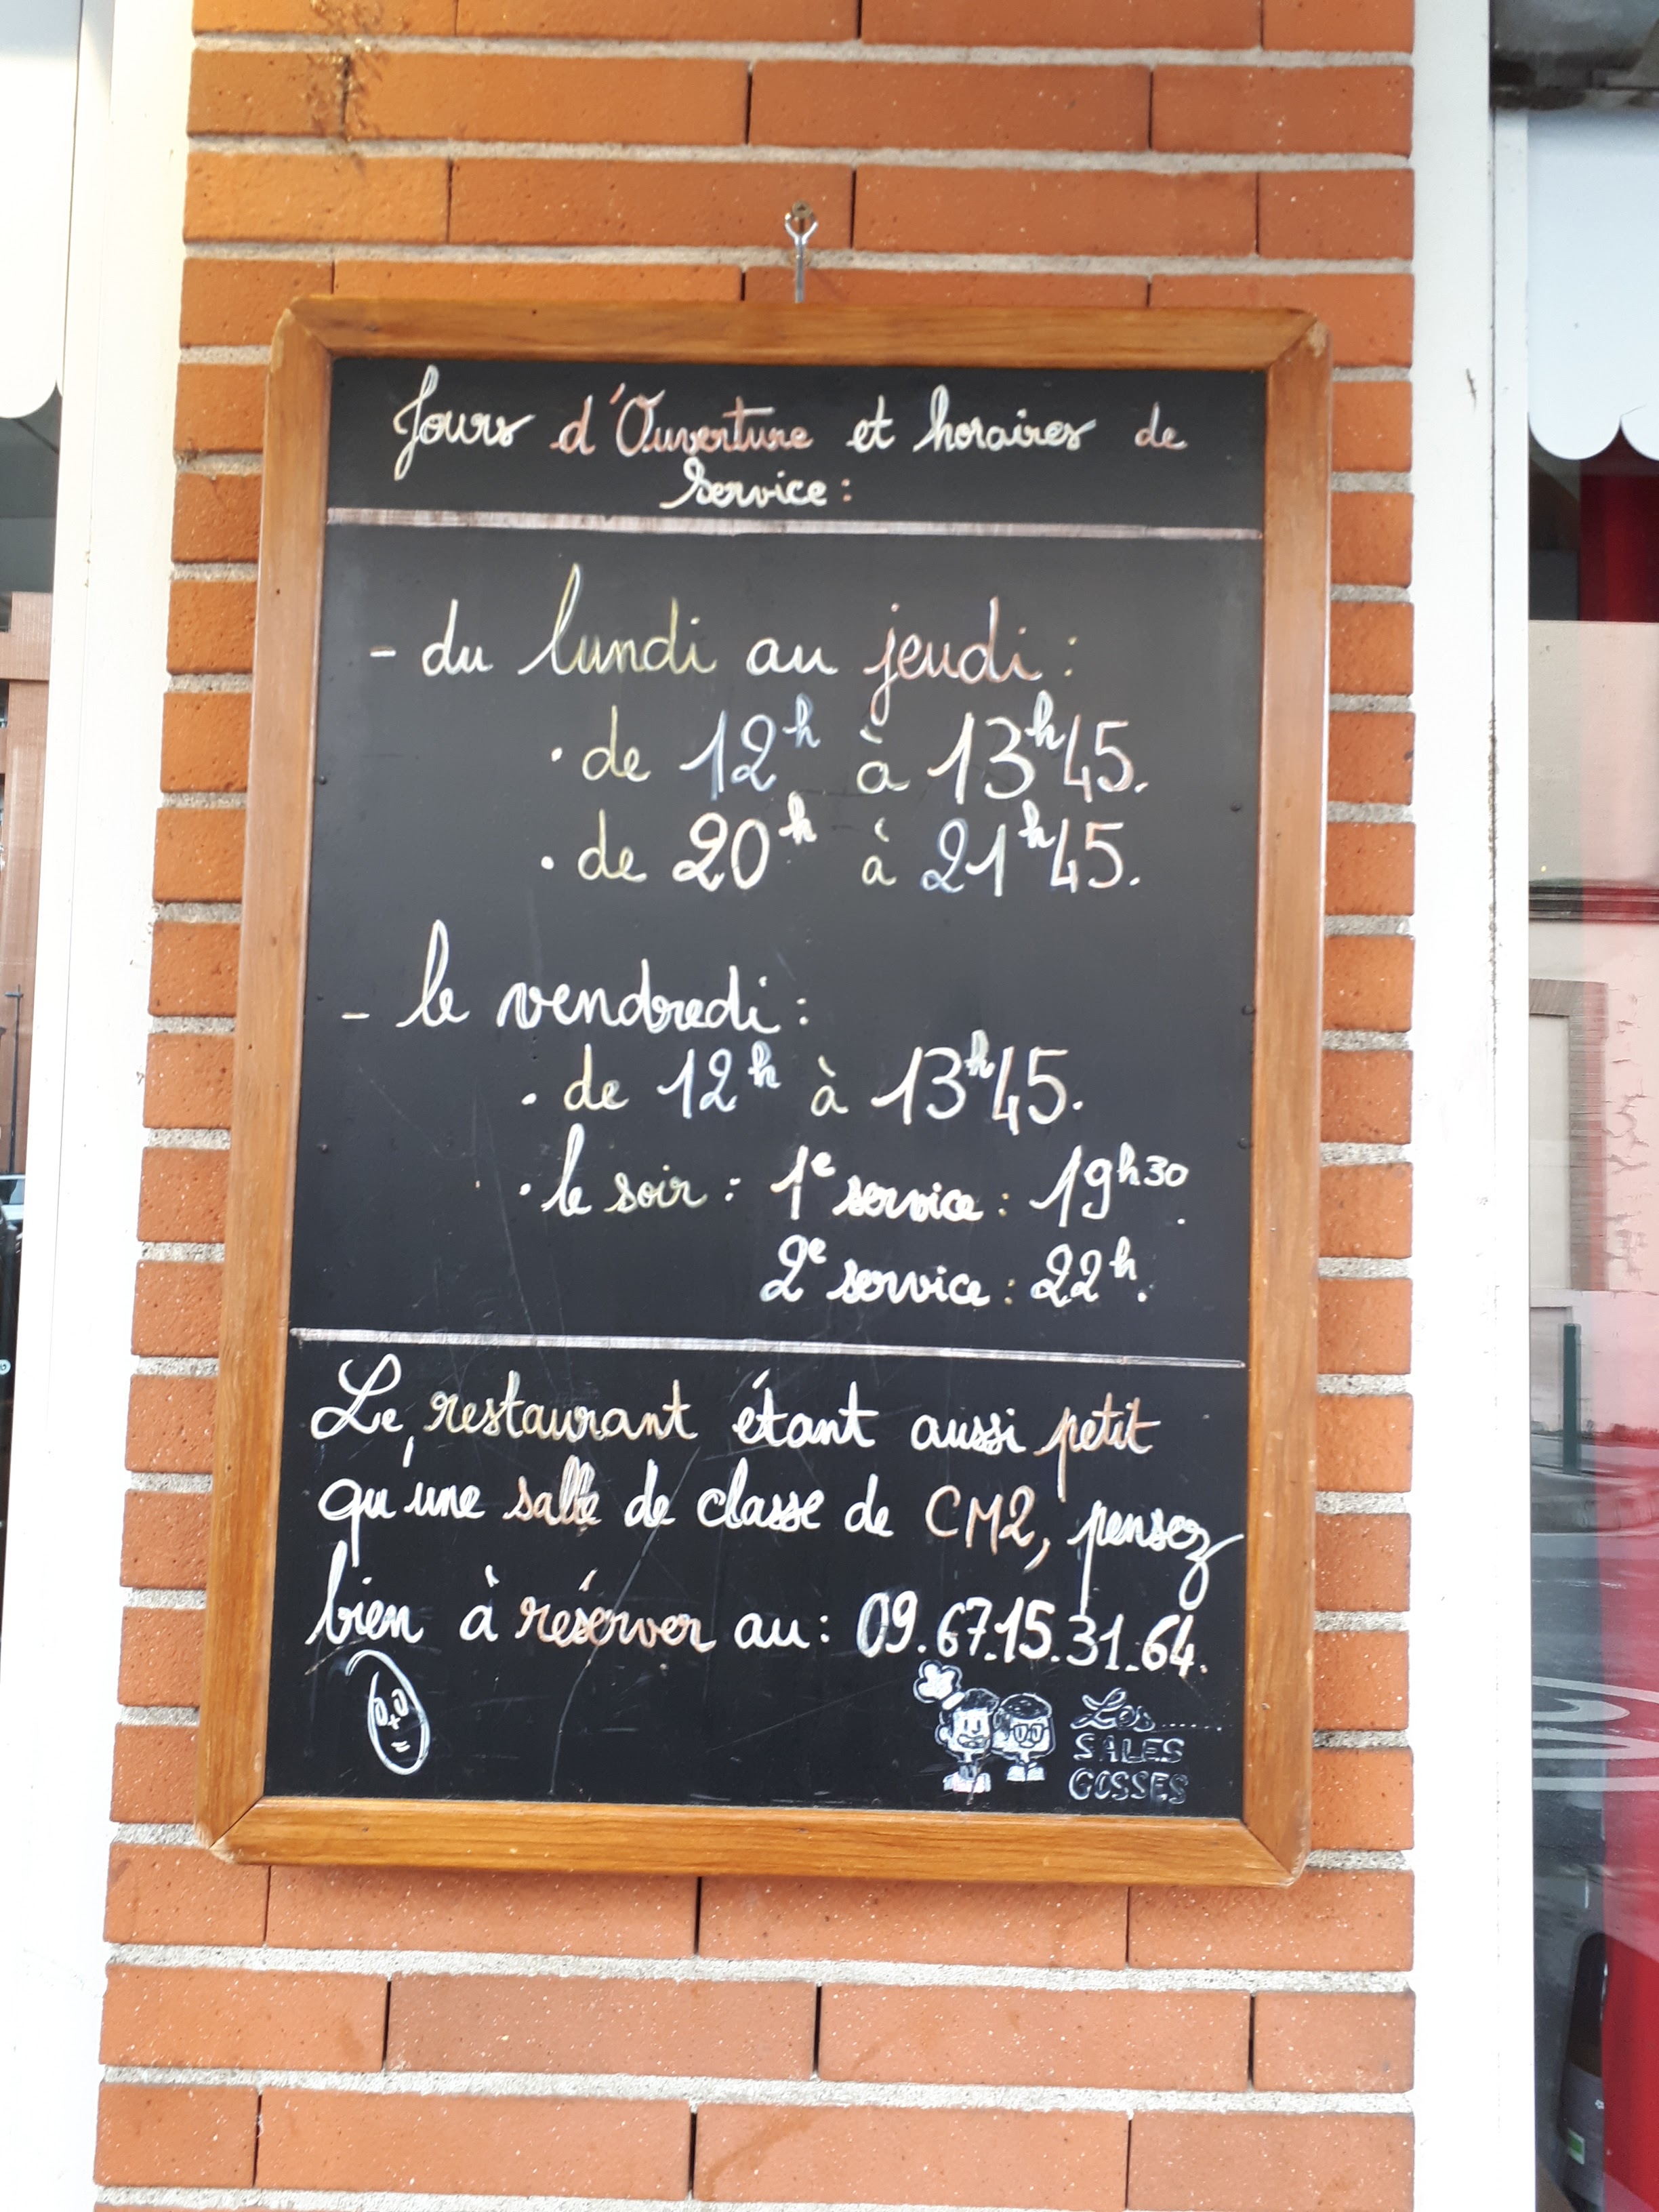 Jours d'Ouverture et horaires de
Service :
- du lundi au jeudi :
· de 12h à 13h45.
· de 20h à 21h45.
- le vendredi :
· de 12h à 13h45.
· le soir : 1e service : 19h30.
2e service : 22h.
Le restaurant étant aussi petit
qu'une salle de classe de CM2, pensez
bien à réserver au : 09.67.15.31.64.
Les......
SALES
GOSSES